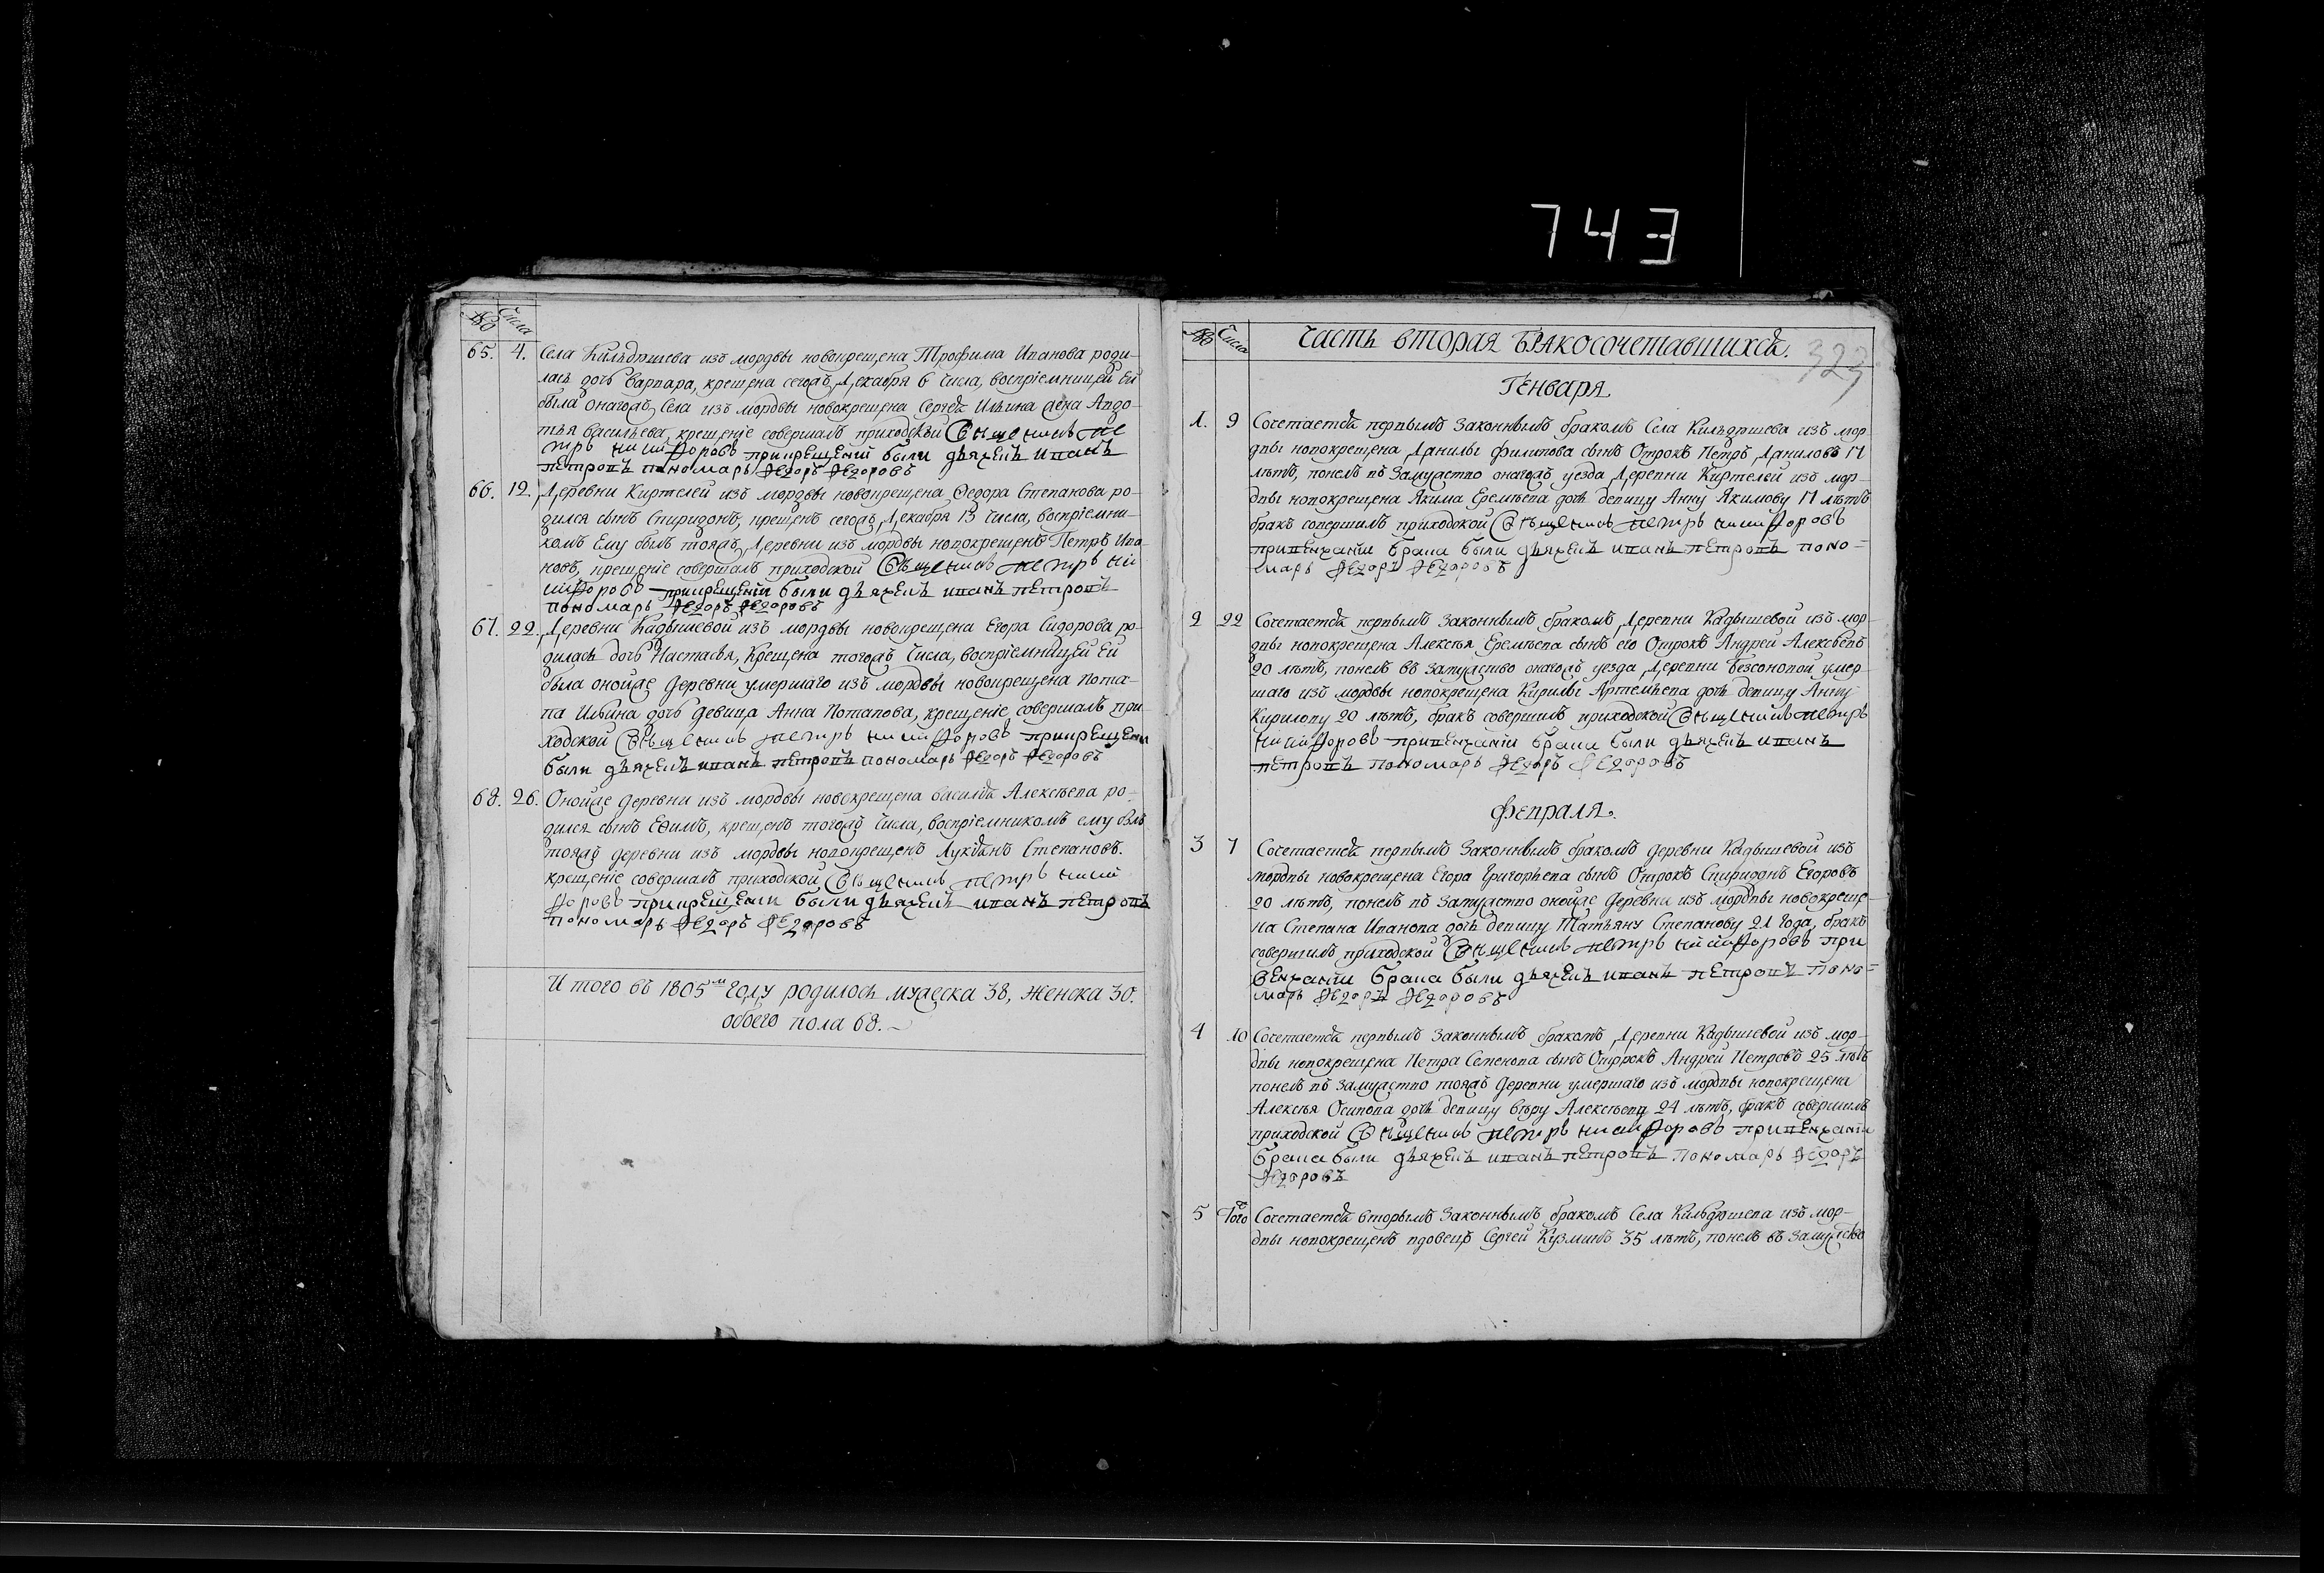 743
№ Числа
65. 4. Села Кильдюшева изъ мордвы новокрещена Трофима Иванова роди-
лась дочь Варвара, крещена сегожъ Декабря 6 числа, воспріемницей ей
была онагожъ Села изъ мордвы новокрещена Сергѣя Ильина жена Авдо-
тья Васильева, крещеніе совершалъ приходской Священникъ Пе
тръ Никифоровъ прикрещеніи были дьячекъ иванъ
петровъ пономарь Федоръ Федоровъ
66. 12. Деревни Киртелей изъ мордвы новокрещена Федора Степанова ро-
дился сынъ Спиридонъ, крещенъ сегожъ Декабря 13 числа, воспріемни-
комъ Ему былъ тояжъ Деревни изъ мордвы новокрещенъ Петръ Ива
новъ, крещеніе совершалъ приходской Священникъ Петръ Ни
кифоровъ прикрещеніи были дьячекъ иванъ петровъ
пономарь Федоръ Федоровъ
67. 22. Деревни Кадышевой изъ мордвы новокрещена Егора Сидорова ро-
дилась дочь Настасья, Крещена тогожъ Числа, воспріемницей Ей
была онойже деревни умершаго изъ мордвы новокрещена Пота-
па Ильина дочь девица Анна Потапова, крещеніе совершалъ при-
ходской Священникъ Петръ Никифоровъ прикрещени
были дьячекъ иванъ петровъ пономарь Федоръ Федоровъ
68. 26. Онойже деревни изъ мордвы новокрещена Василья Алексѣева ро-
дился сынъ Ефимъ, крещенъ тогожъ Числа, воспріемникомъ ему былъ
тояжъ деревни изъ мордвы новокрещенъ Лукіянъ Степановъ.
крещеніе совершалъ приходской Священникъ Петръ Ники
форовъ прикрещеніи были дьячекъ иванъ петровъ
пономарь Федоръ Федоровъ
И того въ 1805м году родилось мужеска 38, женска 30.
обоего пола 68.
№ Числа
Часть вторая БРАКОсочетавшихся.
323
Генваря
1. 9 Сочетается первымъ Законнымъ бракомъ Села Кильдюшева изъ мор
двы новокрещена Данилы Филипова сынъ Отрокъ Петръ Даниловъ 17
лѣтъ, понелъ въ Замужство онагожъ уезда Деревни Киртелей изъ мор-
двы новокрещена Якима Еремѣева дочь девицу Анну Якимову 17 лѣтъ
бракъ совершилъ приходской Священникъ Петръ Никифоровъ
привенчаніи брака были дьячекъ иванъ петровъ поно-
марь Федоръ Федоровъ
2 22 Сочетается первымъ Законнымъ бракомъ Деревни Кадышевой изъ мор-
двы новокрещена Алексѣя Еремѣева сынъ его Отрокъ Андрей Алексѣевъ
20 лѣтъ, понелъ въ замужство онагожъ уезда Деревни Безсоновой умер
шаго изъ мордвы новокрещена Кирилы Артемьева дочь девицу Анну
Кирилову 20 лѣтъ, бракъ совершилъ приходской Священникъ Петръ
Никифоровъ привенчаніи брака были дьячекъ иванъ
петровъ пономарь Федоръ Федоровъ
Февраля.
3 7 Сочетается первымъ Законнымъ бракомъ деревни Кадышевой изъ
мордвы новокрещена Егора Григорьева сынъ Отрокъ Спиридонъ Егоровъ
20 лѣтъ, понелъ въ Замужство онойже деревни изъ мордвы новокреще-
на Степана Иванова дочь девицу Татьяну Степанову 21 Года, бракъ
совершилъ приходской Священникъ Петръ Никифоровъ при
венчаніи брака были дьячекъ иванъ петровъ поно-
марь Федоръ Федоровъ
4 10 Сочетается первымъ Законнымъ бракомъ Деревни Кадышевой изъ мор-
двы новокрещена Петра Семенова сынъ Отрокъ Андрей Петровъ 25 лѣтъ
понелъ въ замужство тояжъ Деревни умершаго изъ мордвы новокрещена
Алексѣя Осипова дочь девицу Вѣру Алексѣеву 24 лѣтъ, бракъ совершилъ
приходской Священникъ Петръ Никифоровъ привенчаніи
брака были дьячекъ иванъ петровъ пономарь Федоръ
Федоровъ
5 Того Сочетается вторымъ Законнымъ бракомъ Села Кильдюшева изъ мор-
двы новокрещенъ вдовецъ Сергей Кузминъ 35 лѣтъ, понелъ въ замужство